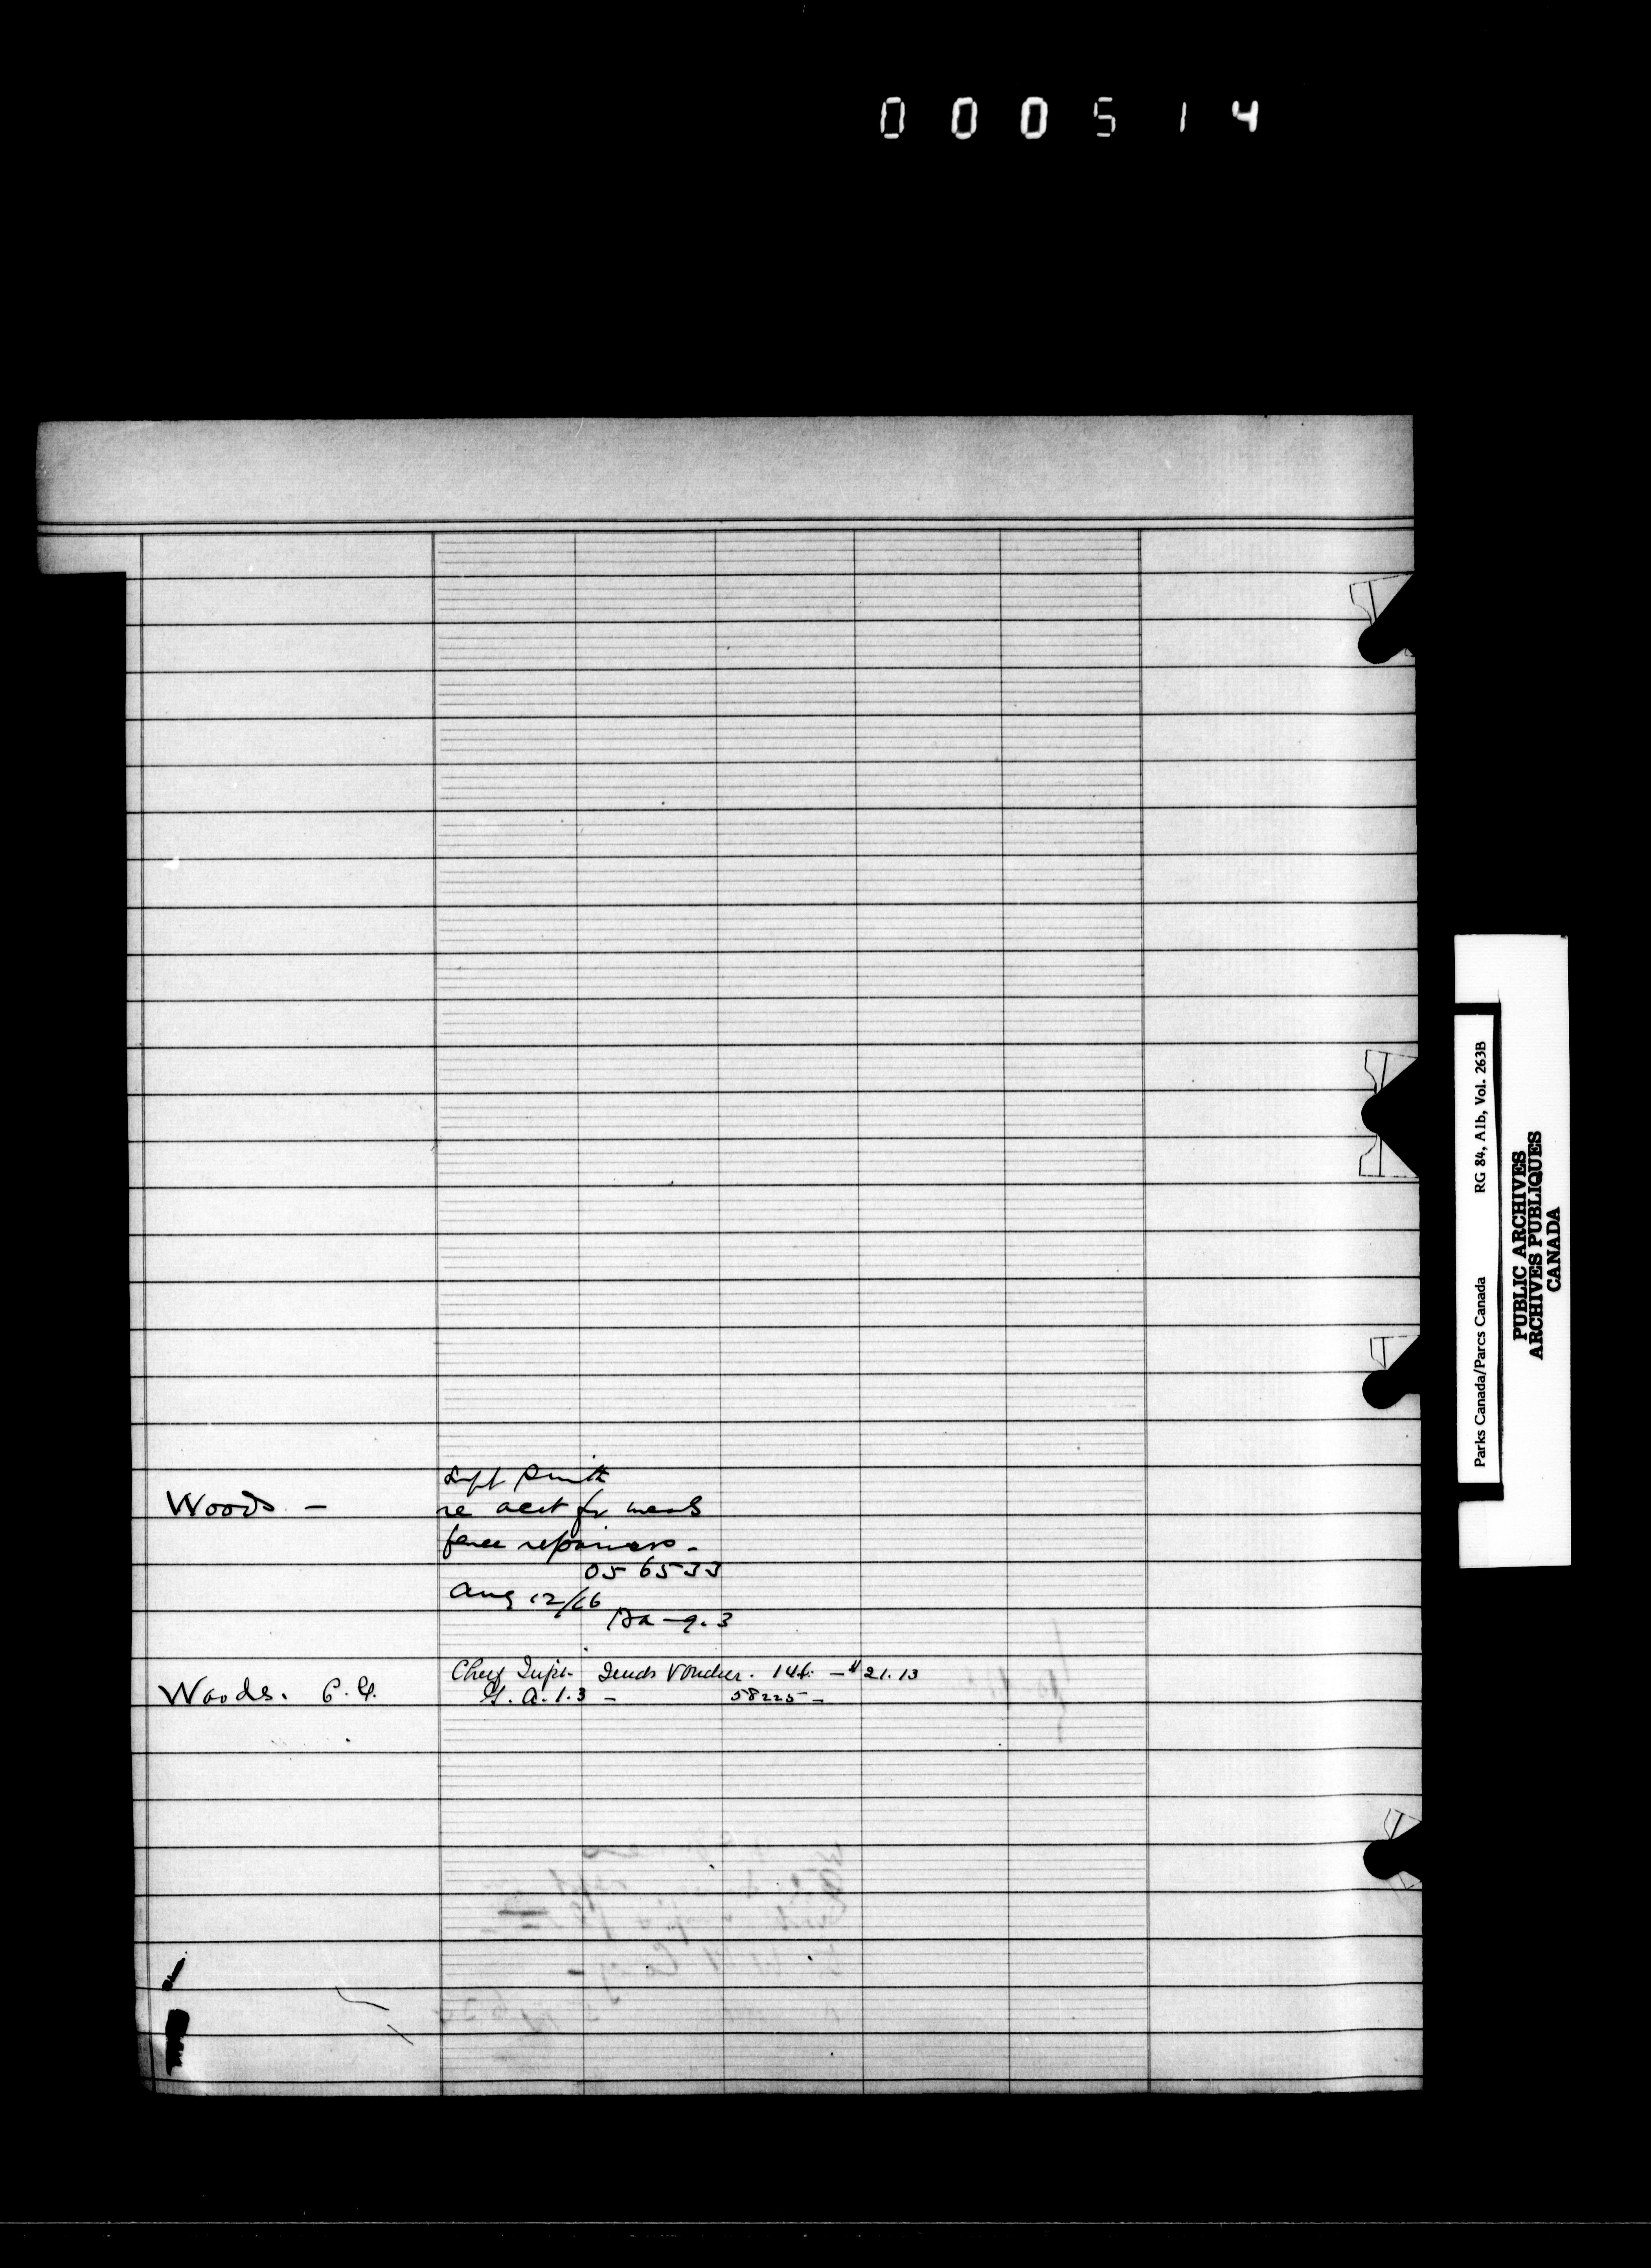 000514
Supt. Smith
Woods - re acct for meals
fence repairers -
056533
Aug 12/16
Ba - 9.3
Chief Supt. Sends Voucher. 14f. - $21.13
Woods. C. G.
G. A. 1.3 - 58225 -
Parks Canada/Parcs Canada RG 84, A1b, Vol. 263B
PUBLIC ARCHIVES
ARCHIVES PUBLIQUES
CANADA